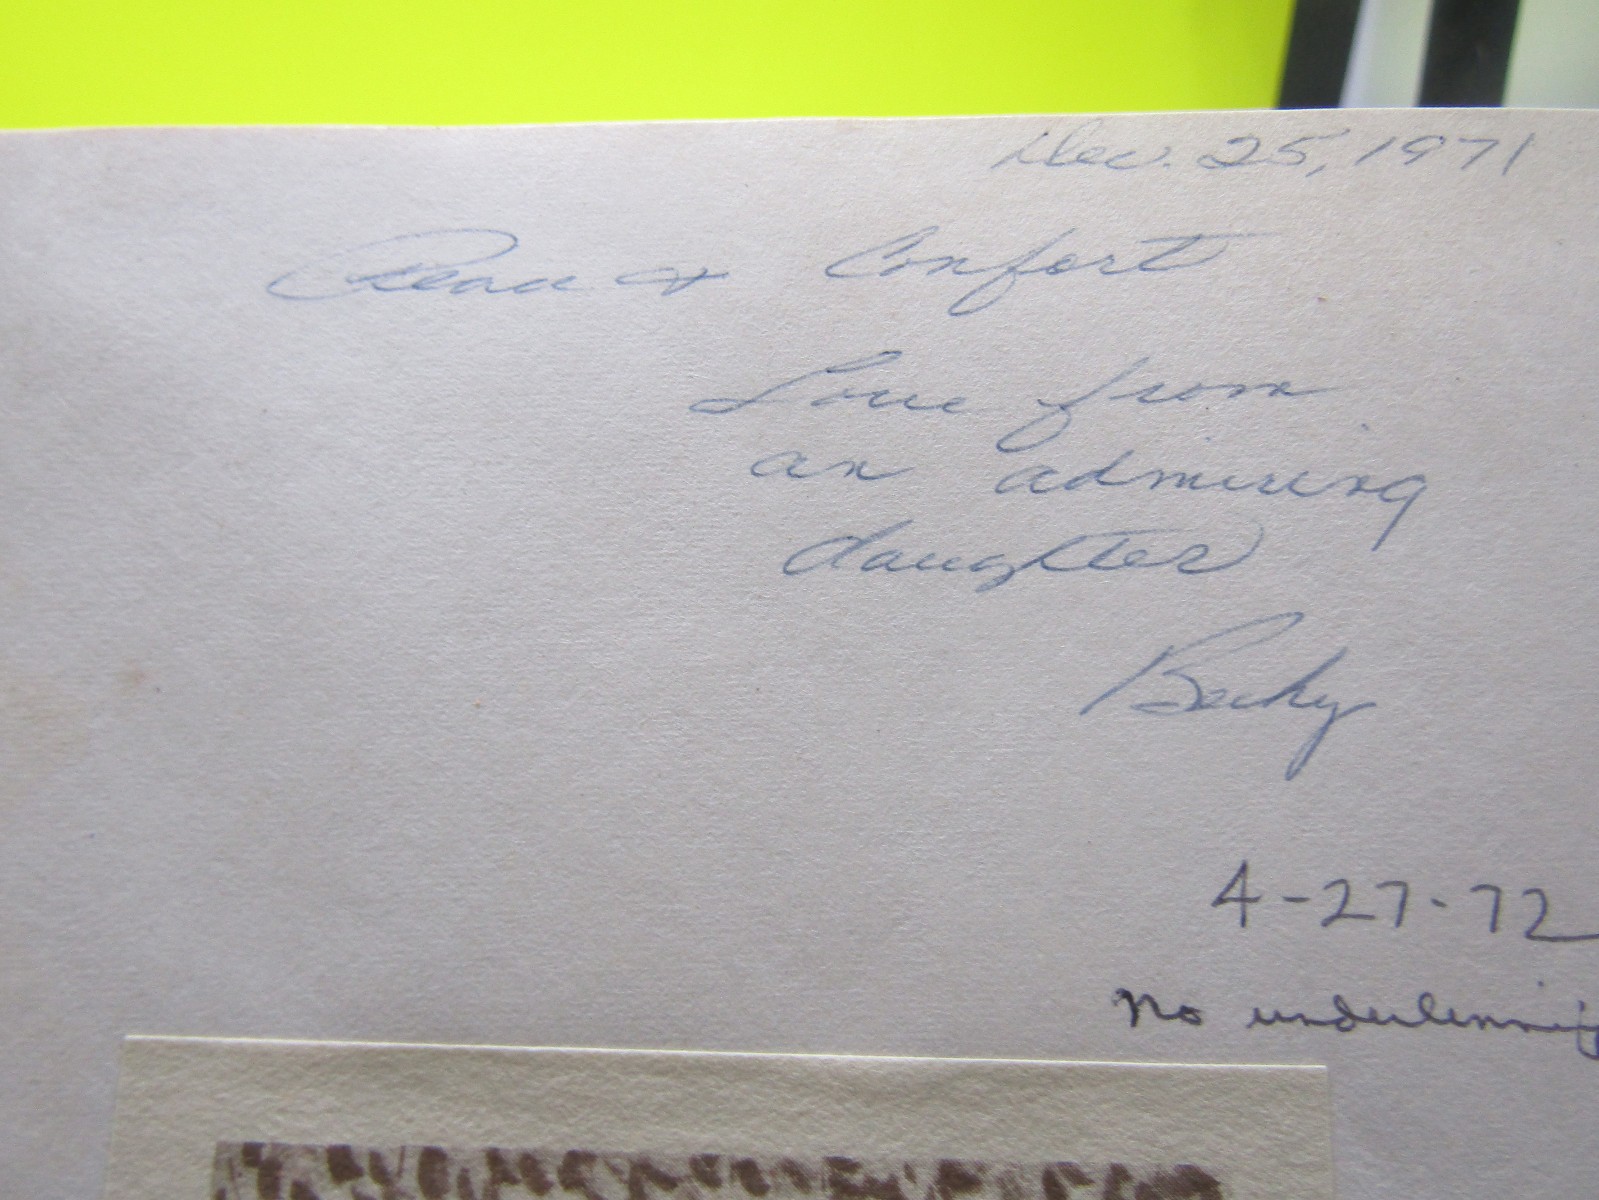 Dec. 25, 1971
Confort
Love from
an admiring
daughter
Becky
4-27-72
No underlinning